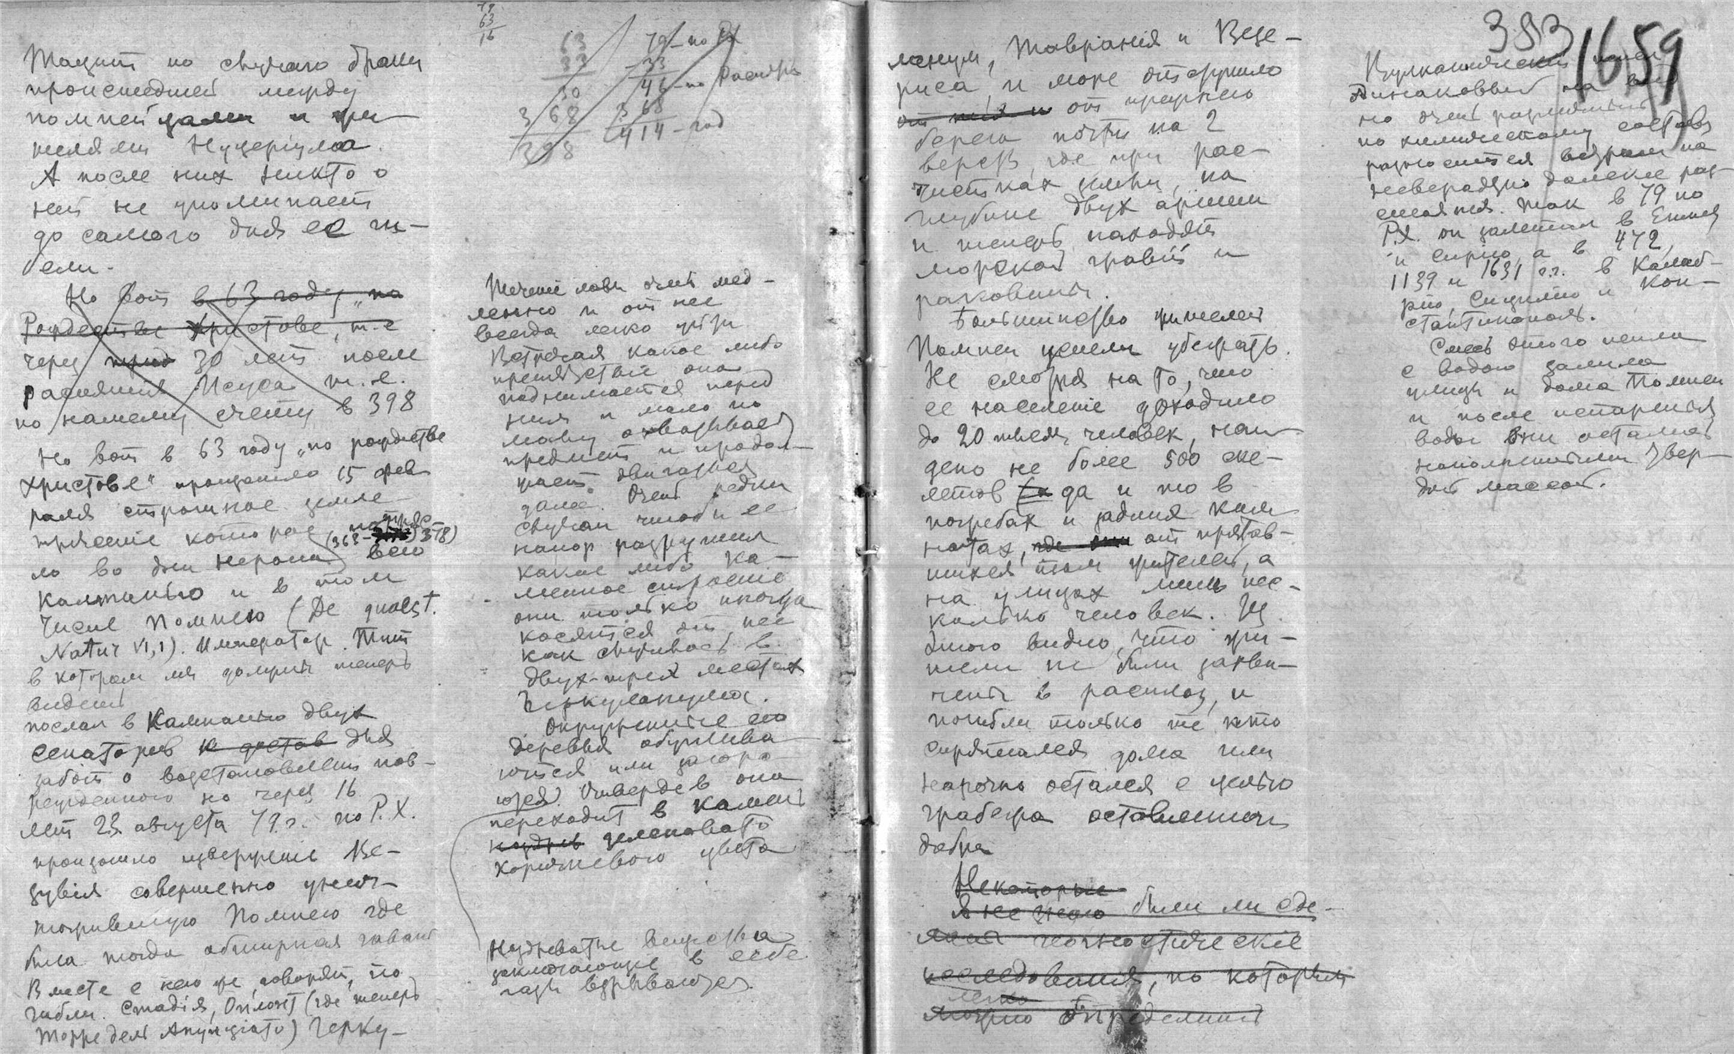 Тацит по случаю драки
происшедшей между
помпейцами и жи-
телями Нуцериума.
А после них никто о
ней не упоминает
до самого дня ее ги-
бели.
Но вот в 63 году „по
Рождестве Христове, т.е
через 30 лет после
распятия Исуса т.е.
по нашему счету в 398
Но вот в 63 году „по рождестве
Христове" произошло 15 фев
раля страшное земле-
трясение которое потряс-
(363- 378)
ло во дни Нерона всю
Кампанью и в том
числе Помпею (De quaest.
Natur VI,1). Император Тит
в котором мы должны теперь
видеть
послал в Кампанью двух
сенаторов для
забот о возстановлении пов-
режденного но через 16
лет 23 августа 79 г. по Р.Х.
произошло извержение Ве-
зувия совершенно уничт-
тожившую Помпею где
была тогда обширная гавань
Вместе с нею же говорят, по
гибли Стабия, Оплонт (где теперь
Торре дель Анунциато) Герку-
79
63
16
63
33
30
368
398
79-по РХ
33
46-по Распятию
368
414-год
Течение лавы очень мед-
ленно и от нее
всегда легко уйти
Встречая какое либо
препятствие она
поднимается перед
ним и мало по
малу охватывает
предмет и продол-
жает двигаться
далее. Очень редки
случаи чтобы ее
напор разрушил
какое либо ка-
менное строение
они только иногда
косятся от нее
как случилось в
двух-трех местах
Геркуланума.
Окруженные ею
деревья обуглива
ются или загора
ются. Отвердев она
переходит в камень
зеленовато
коричневого цвета
Ноздреватые вещества
заключающие в себе
газы взрываются
ланум, Тавраниа и Везе-
риса и море отодвинуло
от прежнего
берега почти на 2
верст, где при рас-
чистках земли, на
глубине двух аршин
и теперь находят
морской гравий и
раковины.
Большинство жителей
Помпеи успели убежать.
Не смотря на то, что
ее население доходило
до 20 тысяч человек, най-
дено не более 500 ске-
летов да и то в
погребах и задних ком
натах, от прятав-
шихся там жителей, а
на улицах лишь нес-
колько человек. Из
этого видно, что жи-
тели не были захва-
чены в расплох, и
погибли только те кто
спрятался дома или
нарочно остался с целью
грабежа оставленного
добра
Некоторые
Я не знаю были ли сде-
ланы геогностические
исследования, по которым
легко
можно определить
393 1659
Вулканический пепел
Одинаковый на вид
но очень различный
по химическому составу
разносится ветрами на
невероятно далекие раз-
стояния. Так в 79 по
Р.Х. он залетал в Египет
и Сирию, а в 472,
1139 и 1631 г.г. в Калаб-
рию, Сицилию и Кон-
стантинополь.
Смесь этого пепла
с водою залила
улицы и дома Помпеи
и после испарения
воды они остались
наполненными твер-
дой массой.